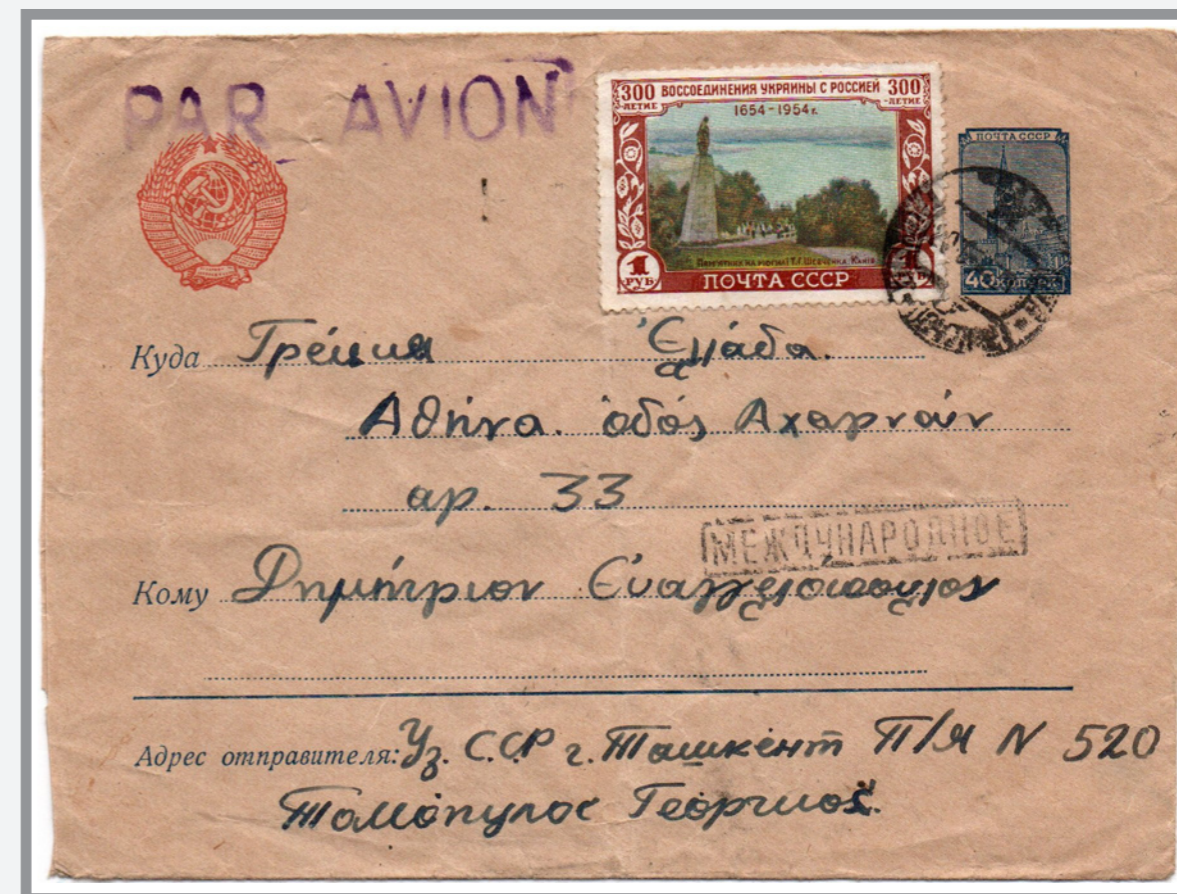 PAR AVION
300 ВОССОЕДИНЕНИЯ УКРАИНЫ С РОССИЕЙ 300
-ЛЕТИЕ -ЛЕТИЕ
1654-1954г.
ПАМЯТНИК НА МОГИЛЕ Т.Г. ШЕВЧЕНКА. КАНЕВ
1 РУБ
ПОЧТА СССР
ПОЧТА СССР
40 КОПЕЕК
Куда Греция Ἑλλάδα.
Αθήνα. ὁδός Αχαρνών
αρ. 33
МЕЖДУНАРОДНОЕ
Кому Δημήτριον Εὐαγγελόπουλον
Адрес отправителя: Уз. С.С.Р г. Ташкент П/Я N 520
Томопулос Георгиос.